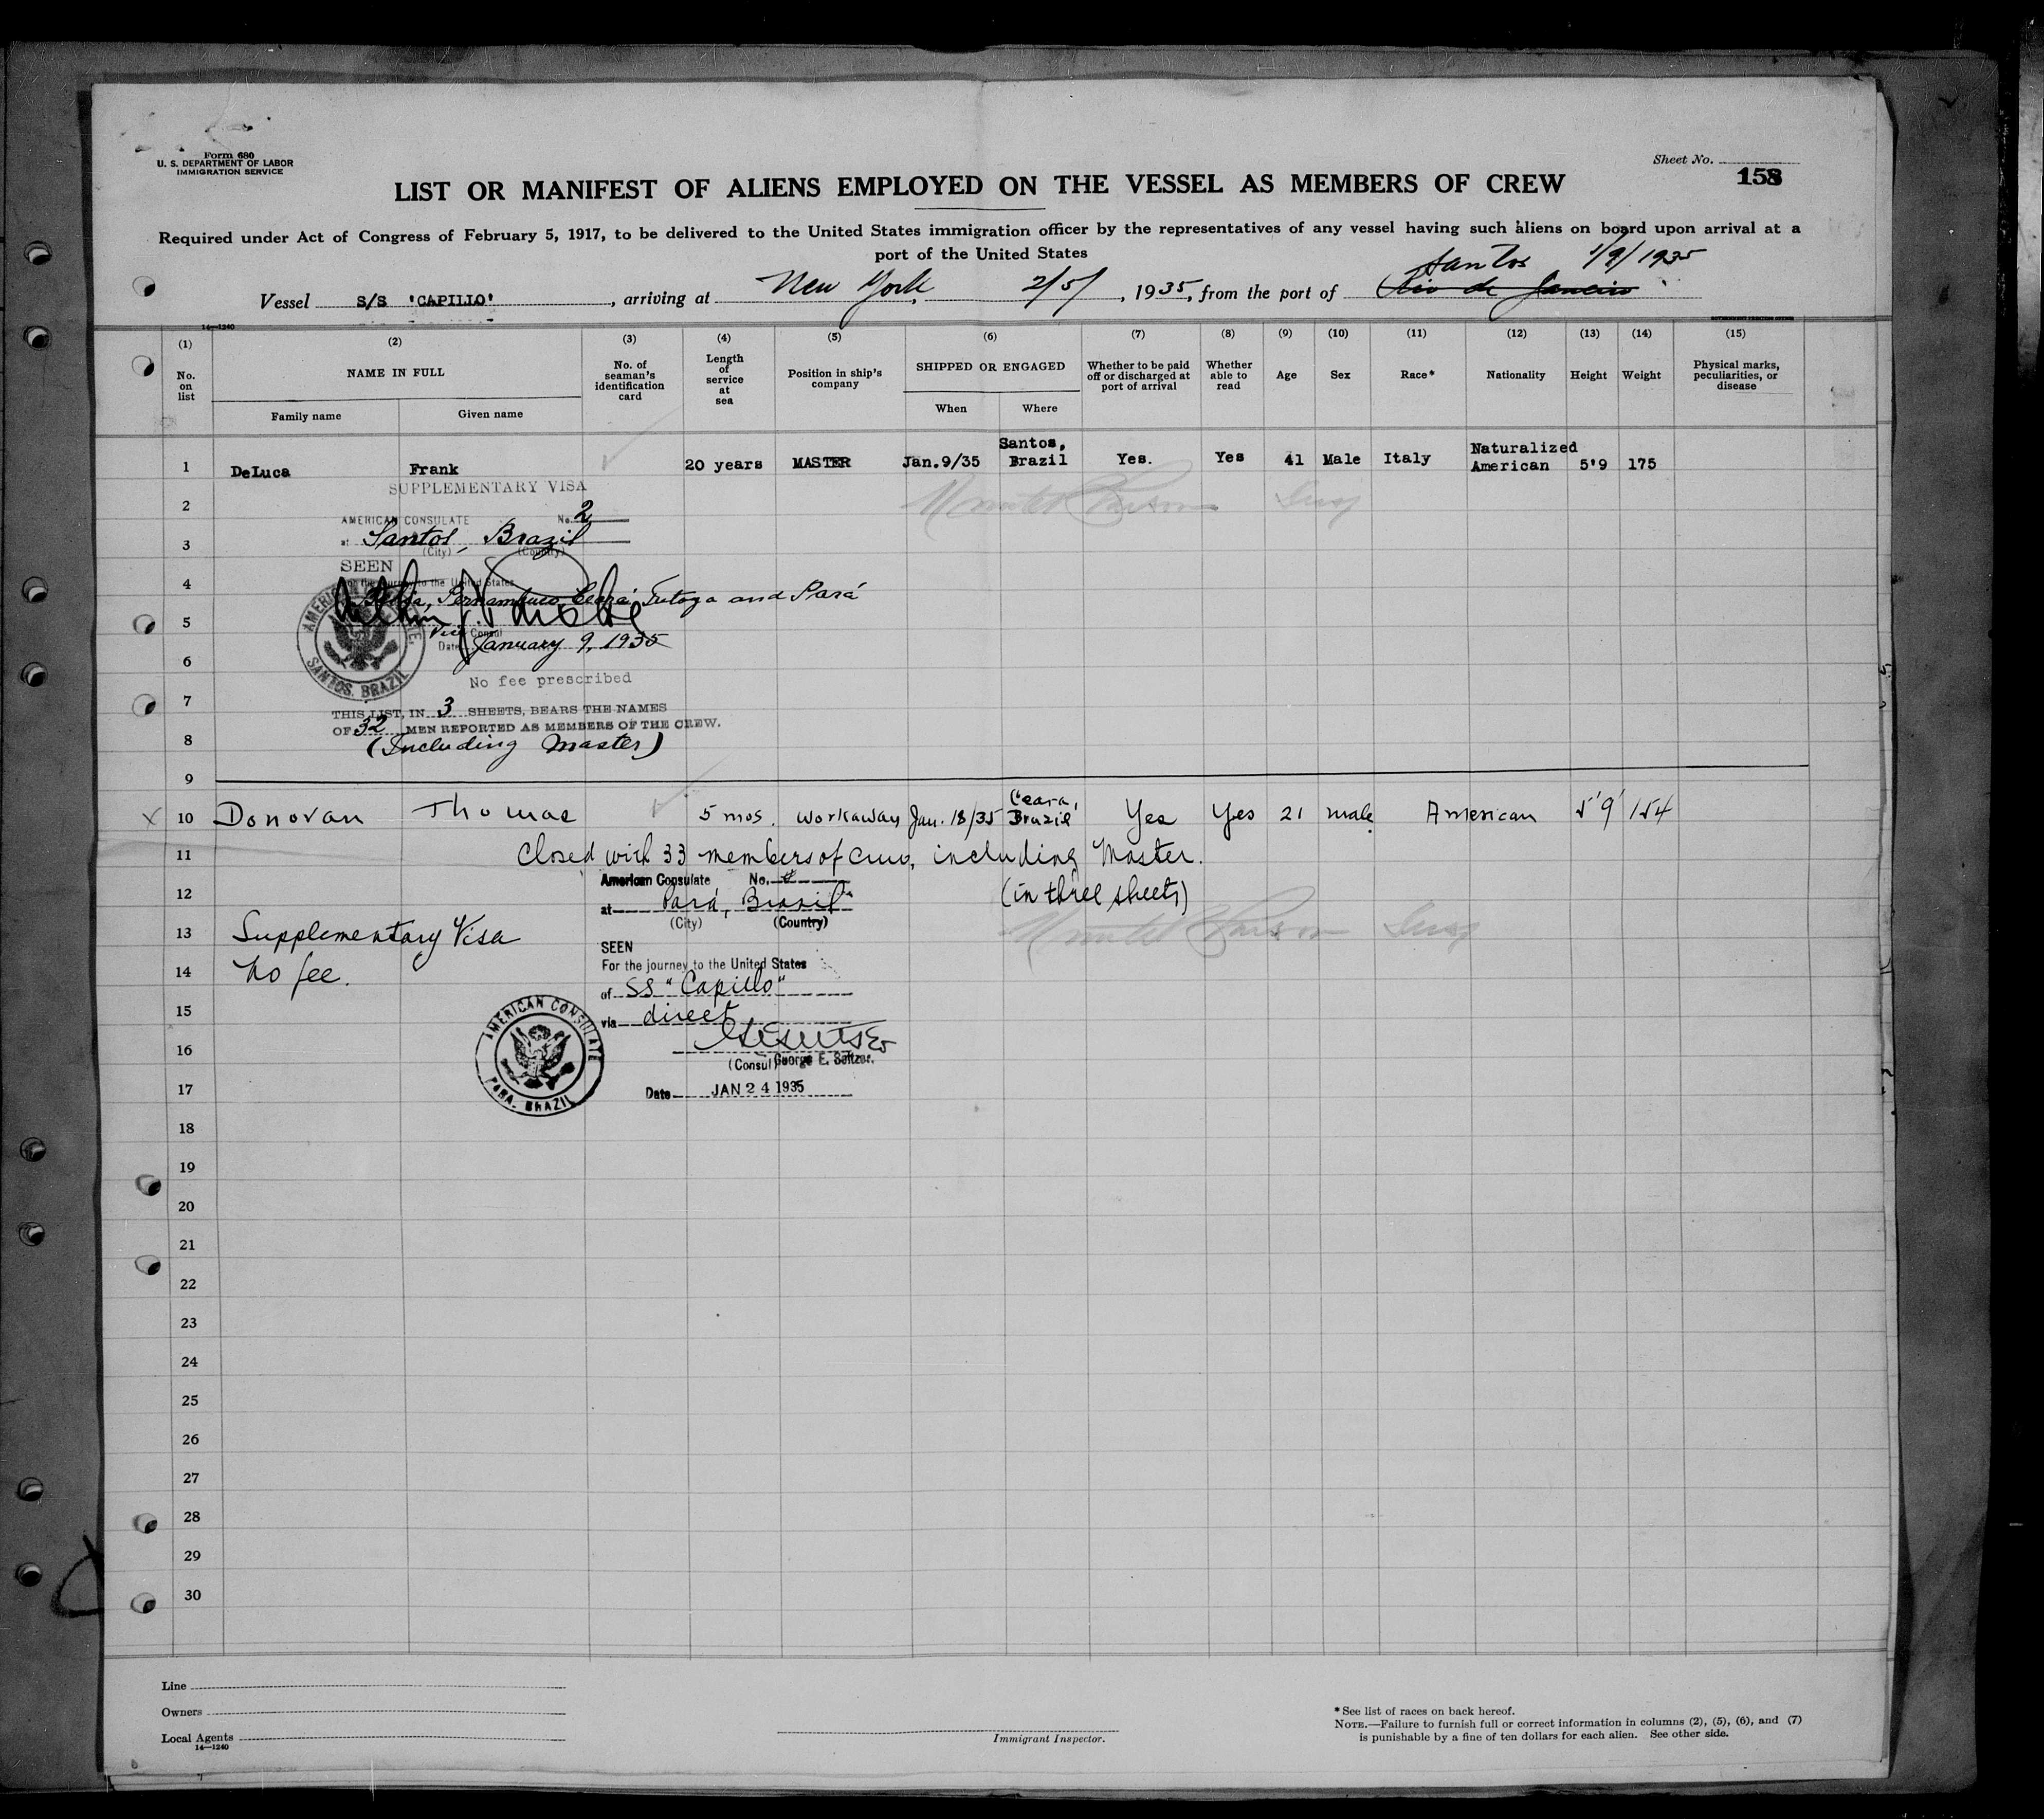 Form 680
U. S. DEPARTMENT OF LABOR
IMMIGRATION SERVICE
Sheet No.
158
LIST OR MANIFEST OF ALIENS EMPLOYED ON THE VESSEL AS MEMBERS OF CREW
Required under Act of Congress of February 5, 1917, to be delivered to the United States immigration officer by the representatives of any vessel having such aliens on board upon arrival at a
port of the United States
Santos 1/9/1935
Vessel S/S 'CAPILLO', arriving at New York, 2/5/, 1935, from the port of Rio de Janeiro
14—1240
(1) (2) (3) (4) (5) (6) (7) (8) (9) (10) (11) (12) (13) (14) (15)
No. on list
NAME IN FULL
Family name Given name
No. of seaman's identification card
Length of service at sea
Position in ship's company
SHIPPED OR ENGAGED
When Where
Whether to be paid off or discharged at port of arrival
Whether able to read
Age
Sex
Race*
Nationality
Height
Weight
Physical marks, peculiarities, or disease
1 DeLuca Frank 20 years MASTER Jan.9/35 Santos, Brazil Yes. Yes 41 Male Italy Naturalized American 5'9 175
SUPPLEMENTARY VISA
2
AMERICAN CONSULATE No. 2
3 at Santos, Brazil
(City) (Country)
SEEN
4 For the journey to the United States
Pernambuco, Ceará, Tutoya and Pará
5
Vice Consul
AMERICAN CONSULATE
SANTOS, BRAZIL
Date January 9, 1935
6
No fee prescribed
7 THIS LIST, IN 3 SHEETS, BEARS THE NAMES
OF 32 MEN REPORTED AS MEMBERS OF THE CREW.
8 (Including Master)
9
10 Donovan Thomas 5 mos. workaway Jan. 18/35 Ceara, Brazil Yes Yes 21 male American 5'9' 154
11 Closed with 33 members of crew, including Master.
American Consulate No.
12 at Pará, Brazil (in three sheets)
(City) (Country)
13 Supplementary Visa
SEEN
14 no fee. For the journey to the United States
of SS "Capillo"
15 via direct
AMERICAN CONSULATE
PARA, BRAZIL
16
(Consul) George E. Seltzer.
17 Date JAN 24 1935
18
19
20
21
22
23
24
25
26
27
28
29
30
Line
Owners
Local Agents
14—1240
Immigrant Inspector.
* See list of races on back hereof.
NOTE.—Failure to furnish full or correct information in columns (2), (5), (6), and (7)
is punishable by a fine of ten dollars for each alien. See other side.